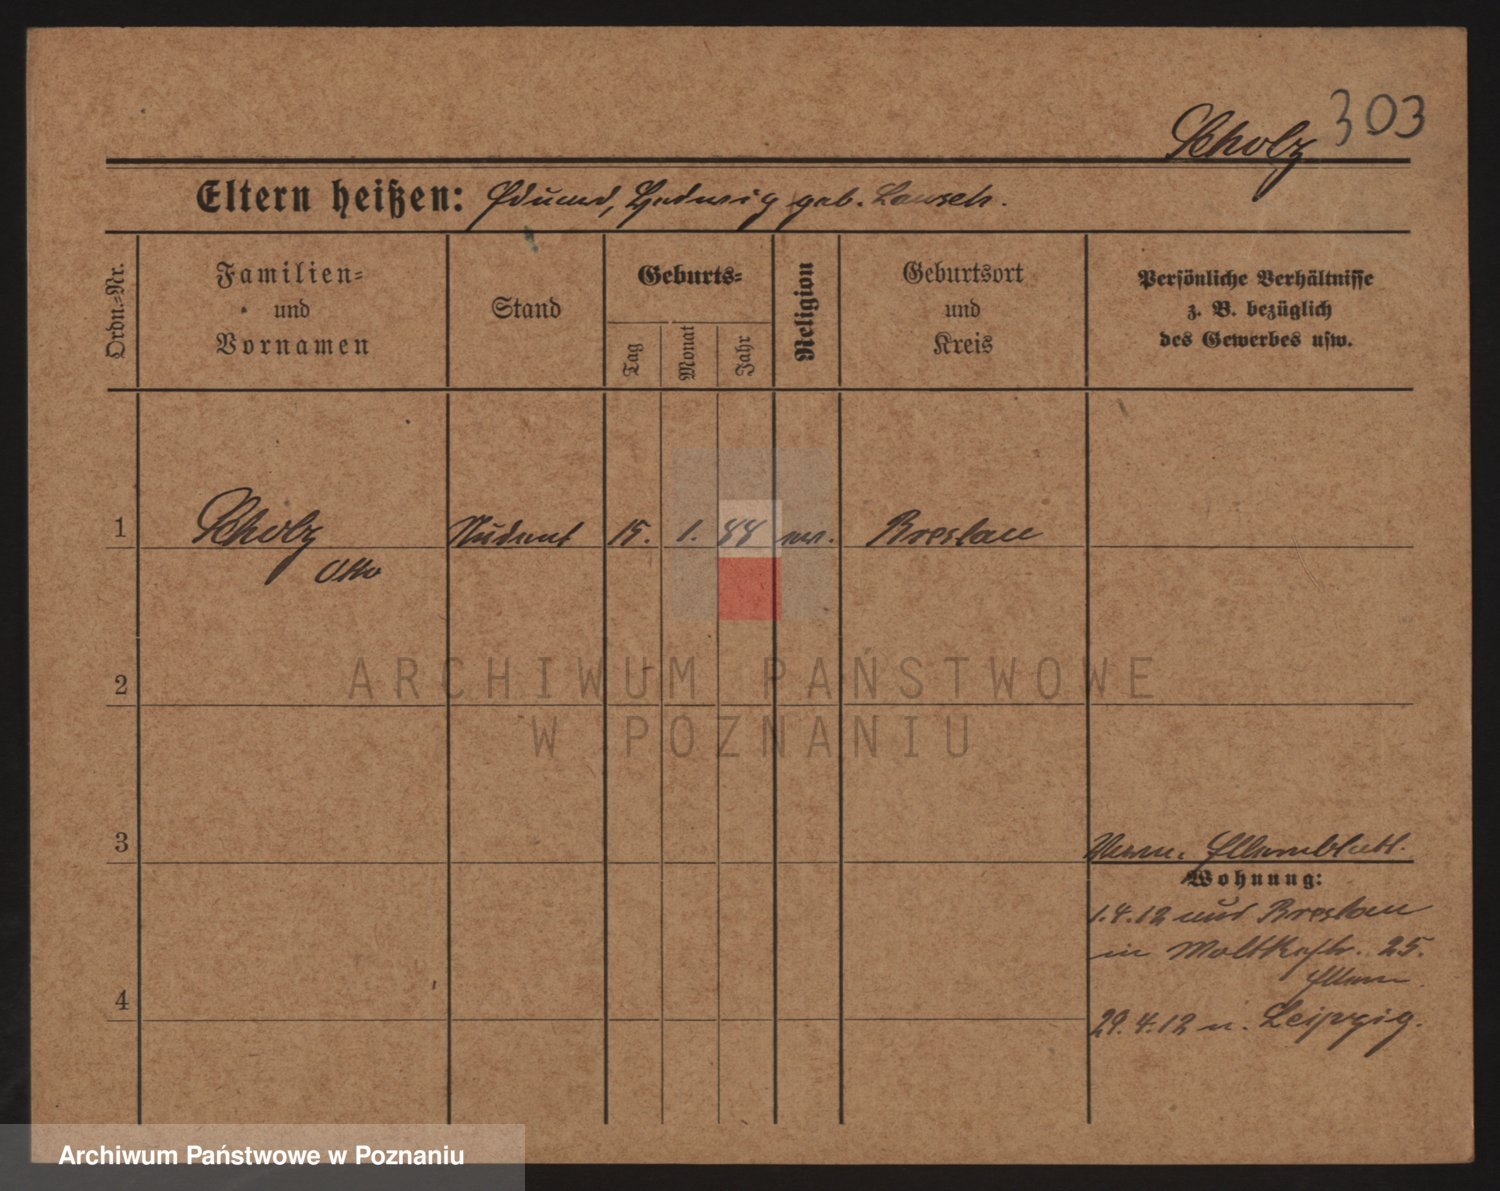 303
Scholz
Eltern heißen: Eduard, Hedwig geb. Lausch.
Ordn.-Nr.
Familien-
und
Vornamen
Stand
Geburts-
Tag
Monat
Jahr
Religion
Geburtsort
und
Kreis
Persönliche Verhältnisse
z. B. bezüglich
des Gewerbes usw.
1 Scholz Student 15. 1. 88 ev. Breslau
Otto
2
3
Elternblatt.
Wohnung:
1.4.12 aus Breslau
in Moltkestr. 25.
Eltern
4
29.4.12 n. Leipzig.
ARCHIWUM PAŃSTWOWE
W POZNANIU
Archiwum Państwowe w Poznaniu